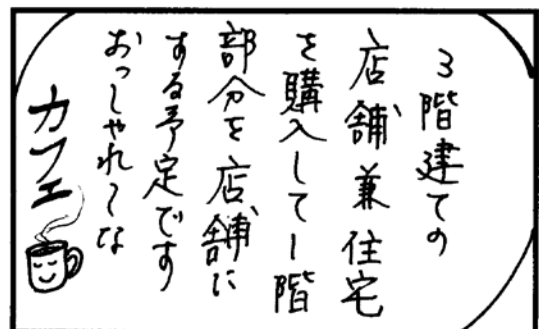 3階建ての
店舗兼住宅
を購入して1階
部分を店舗に
する予定です
おっしゃれ〜な
カフェ